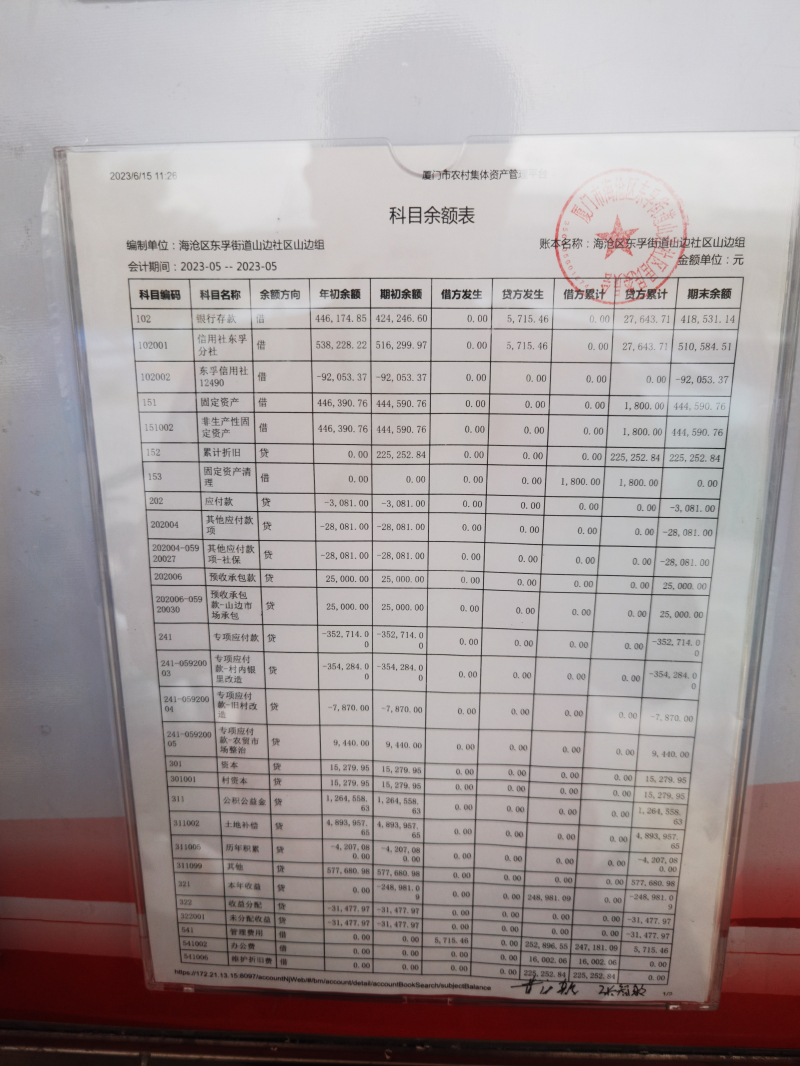 2023/6/15 11:26
厦门市农村集体资产管
科目余额表
编制单位：海沧区东孚街道山边社区山边组 账本名称：海沧区东孚街道山边社区山边组
会计期间：2023-05 -- 2023-05 金额单位：元
科目编码 科目名称 余额方向 年初余额 期初余额 借方发生 贷方发生 借方累计 贷方累计 期末余额
102 银行存款 借 446,174.85 424,246.60 0.00 5,715.46 0.00 27,643.71 418,531.14
102001 信用社东孚分社 借 538,228.22 516,299.97 0.00 5,715.46 0.00 27,643.71 510,584.51
102002 东孚信用社12490 借 -92,053.37 -92,053.37 0.00 0.00 0.00 0.00 -92,053.37
151 固定资产 借 446,390.76 444,590.76 0.00 0.00 0.00 1,800.00 444,590.76
151002 非生产性固定资产 借 446,390.76 444,590.76 0.00 0.00 0.00 1,800.00 444,590.76
152 累计折旧 贷 0.00 225,252.84 0.00 0.00 0.00 225,252.84 225,252.84
153 固定资产清理 借 0.00 0.00 0.00 0.00 1,800.00 1,800.00 0.00
202 应付款 贷 -3,081.00 -3,081.00 0.00 0.00 0.00 0.00 -3,081.00
202004 其他应付款项 贷 -28,081.00 -28,081.00 0.00 0.00 0.00 0.00 -28,081.00
202004-05920027 其他应付款项-社保 贷 -28,081.00 -28,081.00 0.00 0.00 0.00 0.00 -28,081.00
202006 预收承包款 贷 25,000.00 25,000.00 0.00 0.00 0.00 0.00 25,000.00
202006-05920030 预收承包款-山边市场承包 贷 25,000.00 25,000.00 0.00 0.00 0.00 0.00 25,000.00
241 专项应付款 贷 -352,714.00 -352,714.00 0.00 0.00 0.00 0.00 -352,714.00
241-05920003 专项应付款-村内银里改造 贷 -354,284.00 -354,284.00 0.00 0.00 0.00 0.00 -354,284.00
241-05920004 专项应付款-旧村改造 贷 -7,870.00 -7,870.00 0.00 0.00 0.00 0.00 -7,870.00
241-05920005 专项应付款-农贸市场整治 贷 9,440.00 9,440.00 0.00 0.00 0.00 0.00 9,440.00
301 资本 贷 15,279.95 15,279.95 0.00 0.00 0.00 0.00 15,279.95
301001 村资本 贷 15,279.95 15,279.95 0.00 0.00 0.00 0.00 15,279.95
311 公积公益金 贷 1,264,558.63 1,264,558.63 0.00 0.00 0.00 0.00 1,264,558.63
311002 土地补偿 贷 4,893,957.65 4,893,957.65 0.00 0.00 0.00 0.00 4,893,957.65
311005 历年积累 贷 -4,207,080.00 -4,207,080.00 0.00 0.00 0.00 0.00 -4,207,080.00
311099 其他 贷 577,680.98 577,680.98 0.00 0.00 0.00 0.00 577,680.98
321 本年收益 贷 0.00 -248,981.09 0.00 0.00 248,981.09 0.00 -248,981.09
322 收益分配 贷 -31,477.97 -31,477.97 0.00 0.00 0.00 0.00 -31,477.97
322001 未分配收益 贷 -31,477.97 -31,477.97 0.00 0.00 0.00 0.00 -31,477.97
541 管理费用 借 0.00 0.00 5,715.46 0.00 252,896.55 247,181.09 5,715.46
541002 办公费 借 0.00 0.00 0.00 0.00 16,002.06 16,002.06 0.00
541006 维护折旧费 借 0.00 0.00 0.00 0.00 225,252.84 225,252.84 0.00
https://172.21.13.15:8097/accountNjWeb/#/bm/account/detail/accountBookSearch/subjectBalance